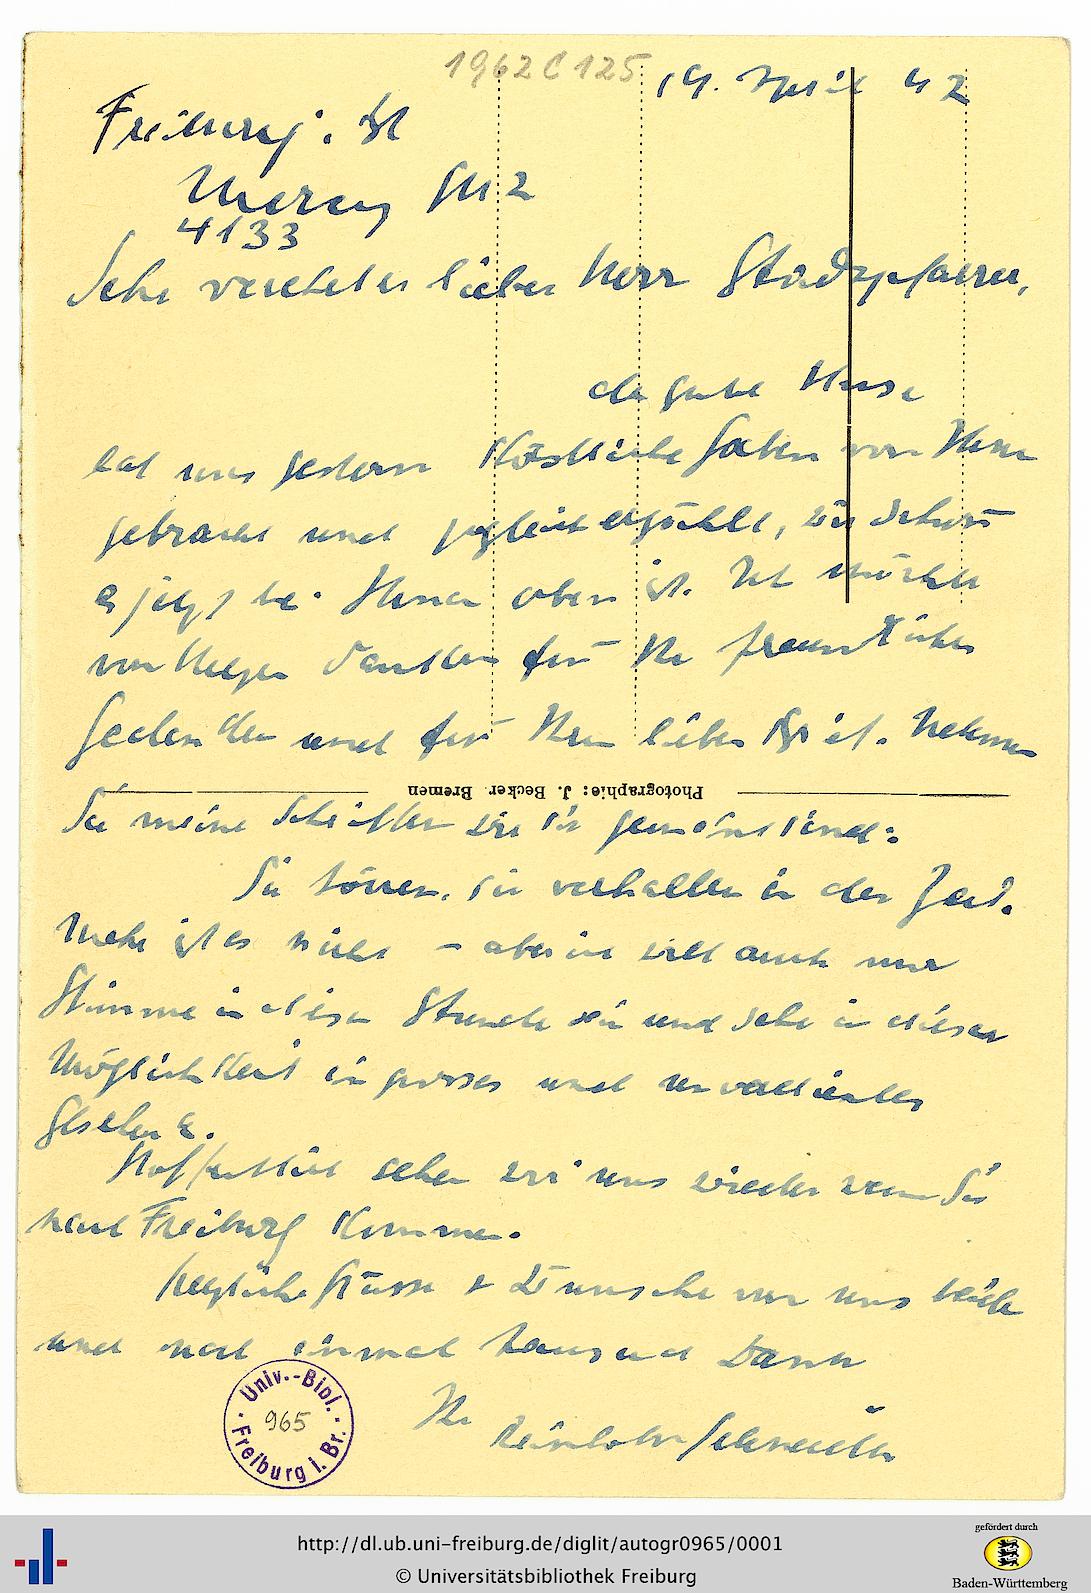 1962 C 125
19. April 42
Freiburg i. Br
Mercystr 2
4133
Sehr verehrter lieber Herr Stadtpfarrer,
der gute
hat uns gestern köstliche Gaben von Ihnen
gebracht und zugleich erzählt, wie schön
es jetzt bei Ihnen oben ist. Ich möchte
von Herzen danken für Ihr freundliches
Gedenken und für Ihren lieben Brief. Nehmen
Photographie: J. Becker Bremen
Sie meine Schriften wie sie gemeint sind:
Sie tönen, sie verhallen in der Zeit.
Mehr ist es nicht – aber ich will auch nur
Stimme in dieser Stunde sein und sehe in dieser
Möglichkeit ein grosses und unverdientes
Geschenk.
Hoffentlich sehen wir uns wieder wenn Sie
nach Freiburg kommen.
Herzliche Grüsse & Wünsche von uns beide
und noch einmal tausend Dank
Ihr
Reinhold Schneider
Univ.-Bibl.
965
Freiburg i. Br.
http://dl.ub.uni-freiburg.de/diglit/autogr0965/0001
© Universitätsbibliothek Freiburg
gefördert durch
Baden-Württemberg